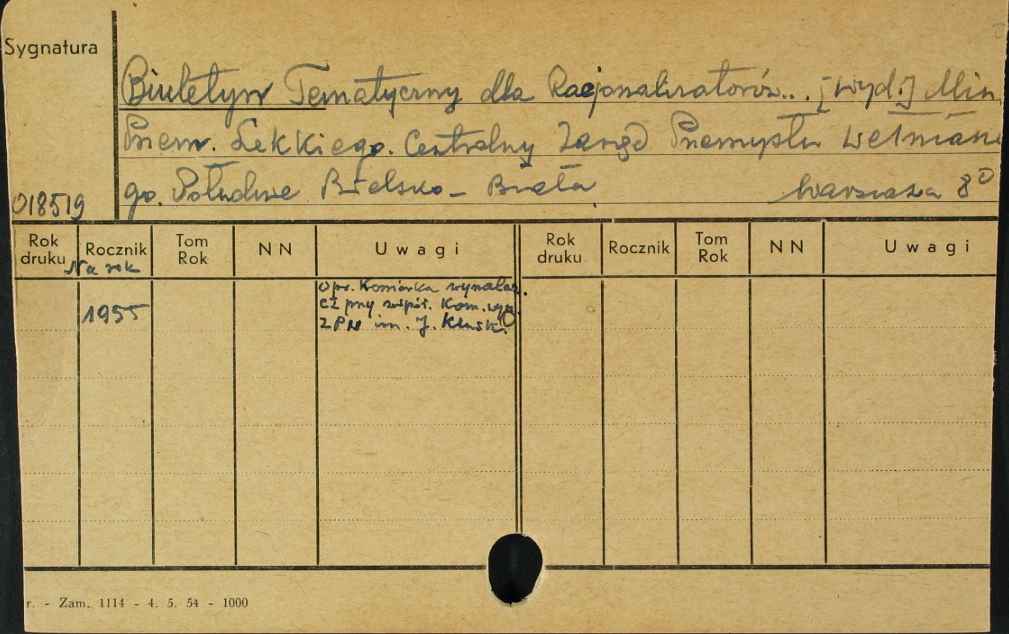 Sygnatura
Biuletyn Tematyczny dla Racjonalizatorów... [wyd.] Min.
Przem. Lekkiego. Centralny Zarząd Przemysłu Wełniane
go. Południe Bielsko - Biała
Warszawa 8°
018519
Rok druku Rocznik Tom Rok NN Uwagi Rok druku Rocznik Tom Rok NN Uwagi
Na rok
Opr. Komórka wynalaz.
1955 cz przy współ. Kom. wyn.
ZPW im. J.
r. - Zam. 1114 - 4. 5. 54 - 1000